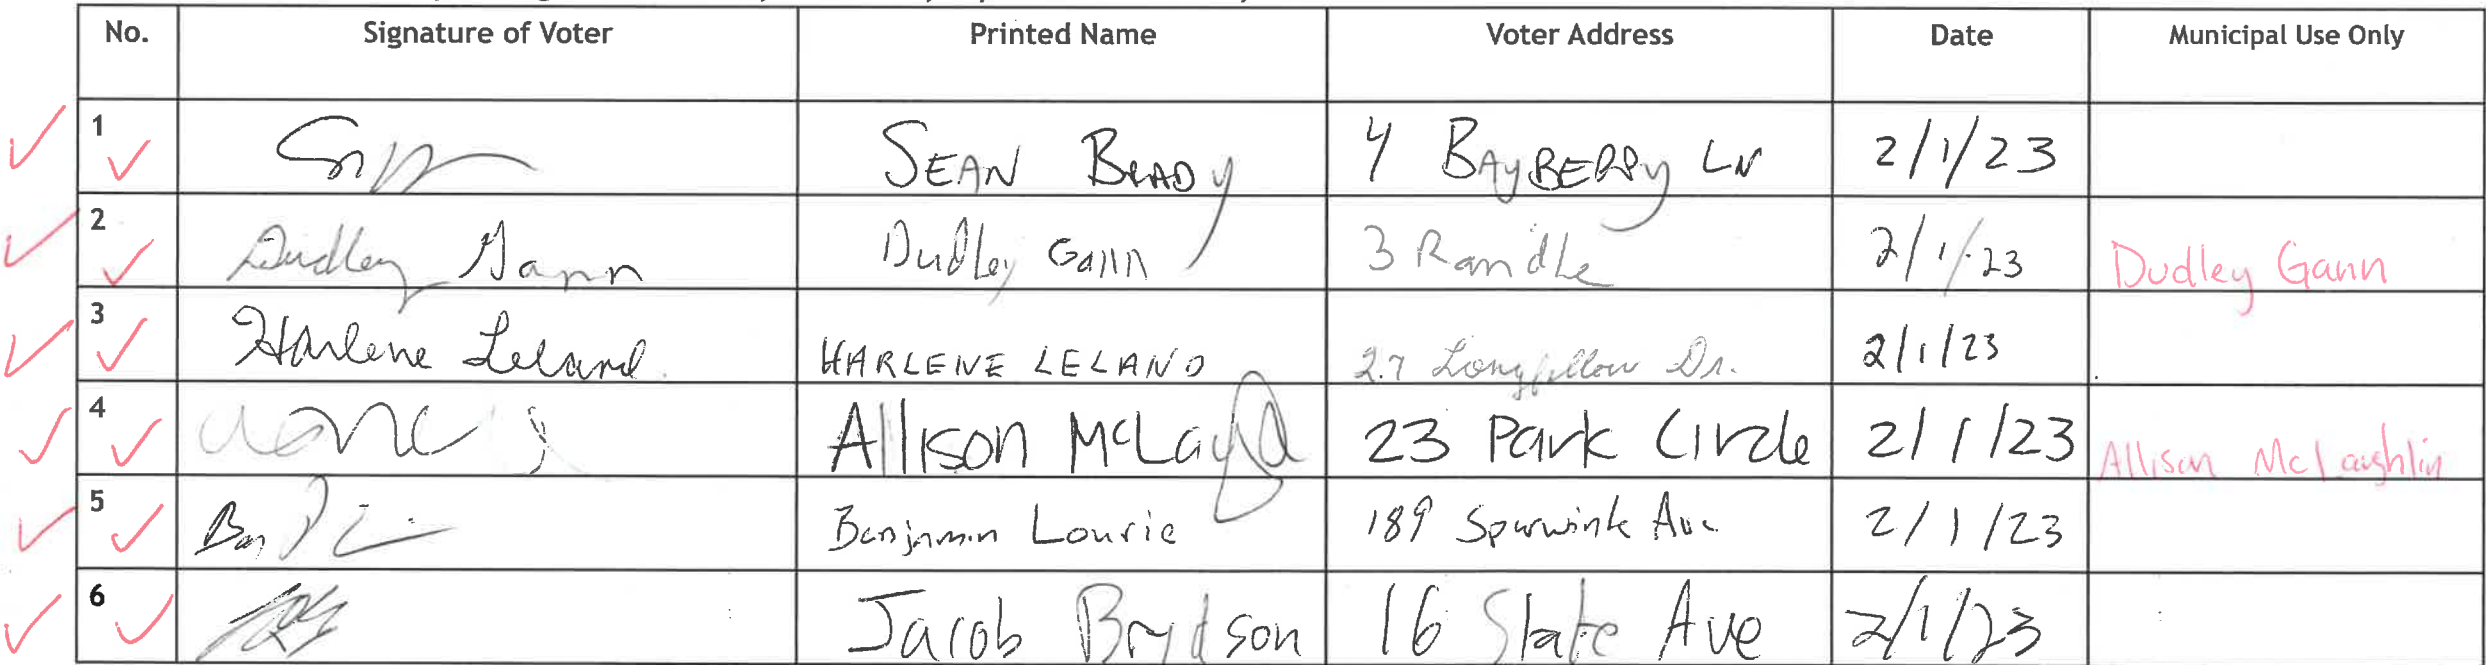 No. Signature of Voter Printed Name Voter Address Date Municipal Use Only
1 SEAN BRADY 4 BAYBERRY LN 2/1/23
2 Dudley Gann Dudley Gann 3 Randle 2/1/23 Dudley Gann
3 Harlene Leland HARLENE LELAND 27 Longfellow Dr. 2/1/23
4 Allison 23 Park Circle 2/1/23 Allison McLaughlin
5 Benjamin Lourie 189 Spurwink Ave 2/1/23
6 Jacob Brydson 16 State Ave 2/1/23